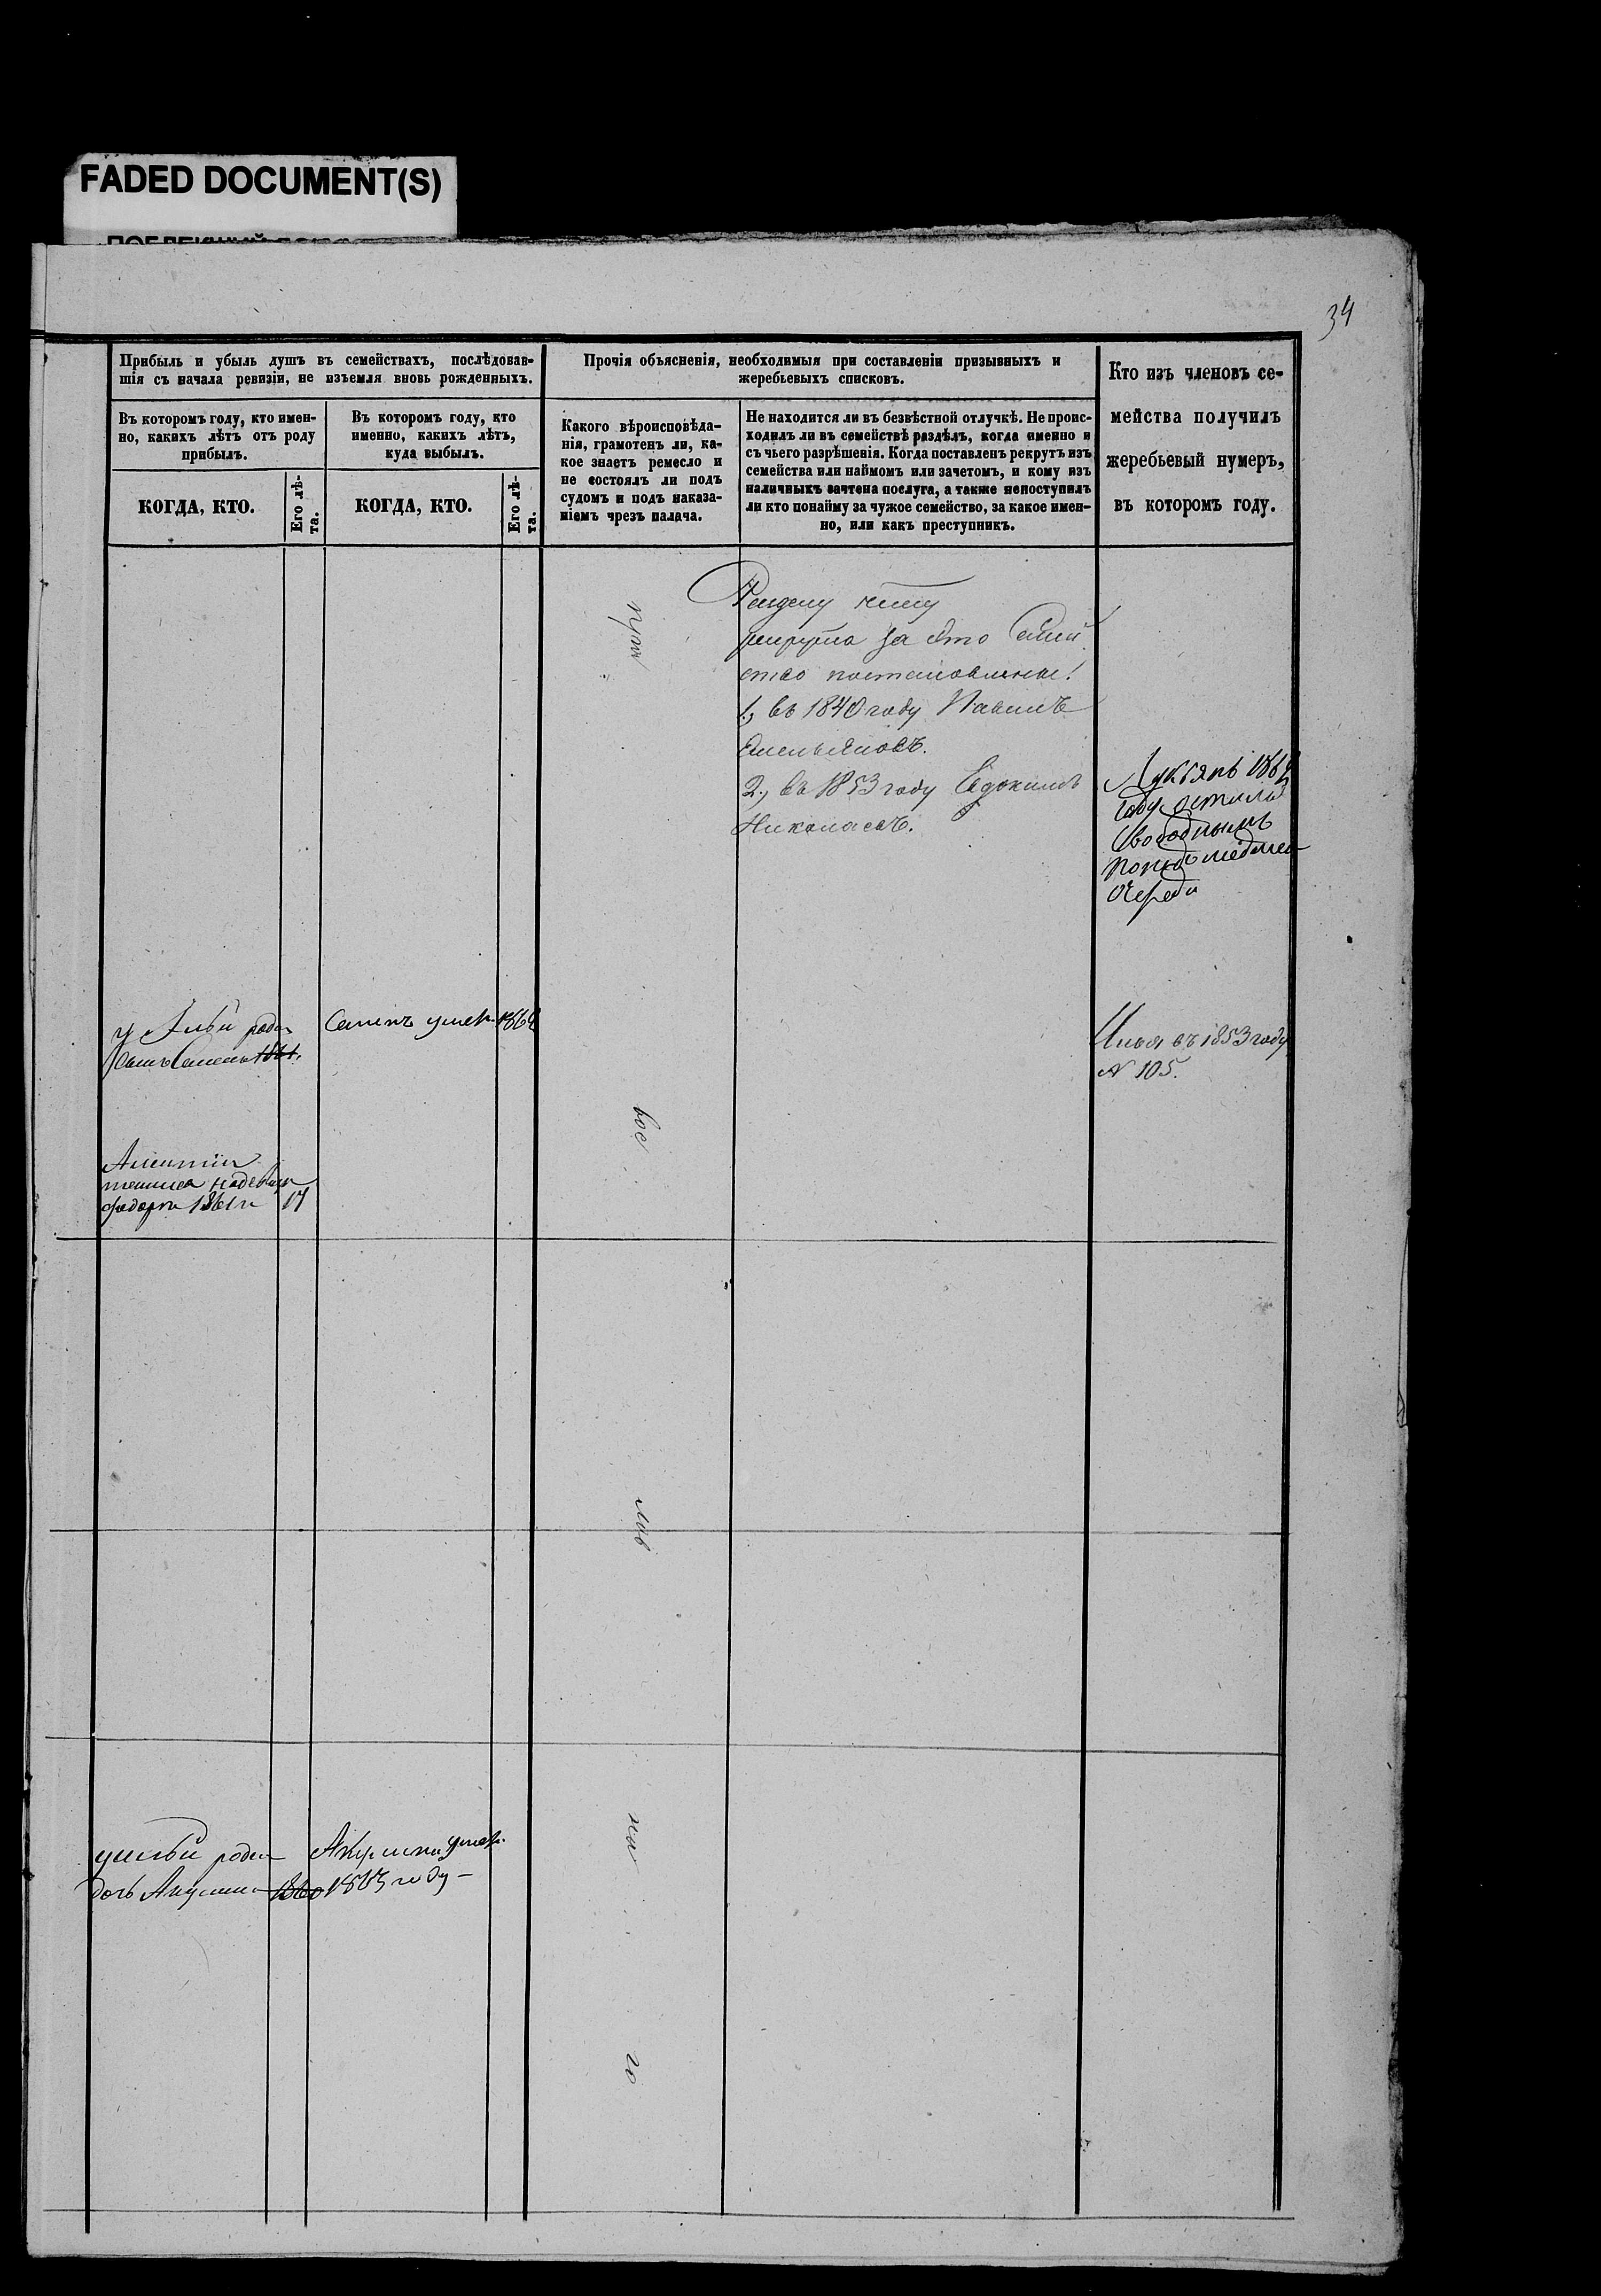 FADED DOCUMENT(S)
34
Прибыль и убыль душъ въ семействахъ, послѣдовав-
шія съ начала ревизіи, не изъемля вновь рожденныхъ.
Въ которомъ году, кто имен-
но, какихъ лѣтъ отъ роду
прибылъ.
КОГДА, КТО.
Его лѣ-
та.
Въ которомъ году, кто
именно, какихъ лѣтъ,
куда выбылъ.
КОГДА, КТО.
Его лѣ-
та.
Прочія объясненія, необходимыя при составленіи призывныхъ и
жеребьевыхъ списковъ.
Какого вѣроисповѣда-
нія, грамотенъ ли, ка-
кое знаетъ ремесло и
не состоялъ ли подъ
судомъ и подъ наказа-
ніемъ чрезъ палача.
Не находится ли въ безвѣстной отлучкѣ. Не проис-
ходилъ ли въ семействѣ раздѣлъ, когда именно и
съ чьего разрѣшенія. Когда поставленъ рекрутъ изъ
семейства или наймомъ или зачетомъ, и кому изъ
наличныхъ зачтена послуга, а также непоступилъ
ли кто понайму за чужое семейство, за какое имен-
но, или какъ преступникъ.
Кто изъ членовъ се-
мейства получилъ
жеребьевый нумеръ,
въ которомъ году.
рекрута за это Семей
ство
1., въ 1840 году Павелъ
Емельяновъ.
2., въ 1853 году Евдокимъ
Николаевъ.
Лукьянъ
году
свободнымъ
очереди
у Ильи роди
сынъ Семенъ 1861.
Семенъ умеръ 1864
Илья въ 1853 году
№ 105.
Федоръ 1861 17
пра
вос
лав
на
го
у Ильи роди
дочь Акулина 1860
Акулина умер.
1863 году -